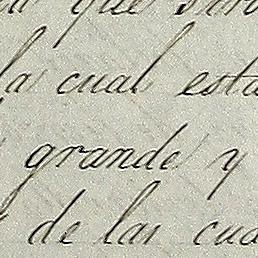 que
la cual esta
grande y
de las cua